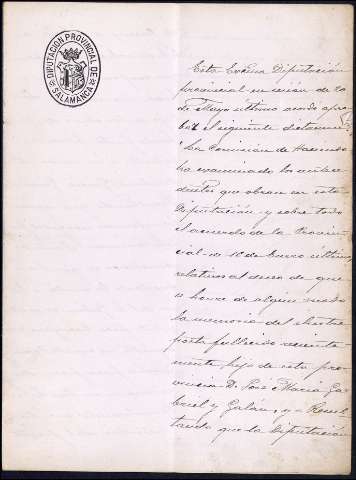 DIPUTACIÓN PROVINCIAL DE
SALAMANCA
Esta Excma Diputación
provincial en sesión de 20
de Mayo último acordó apro-
bar el siguiente dictamen:
"La Comisión de Hacienda
ha examinado los antece-
dentes que obran en esta
Diputación y sobre todo
el acuerdo de la Provin-
cial de 10 de Enero último
relativo al deseo de que
se honre de algún modo
la memoria del ilustre
poeta fallecido reciente-
mente, hijo de esta pro-
vincia D. José María Ga-
briel y Galán, y = Resul-
tando que la Diputación